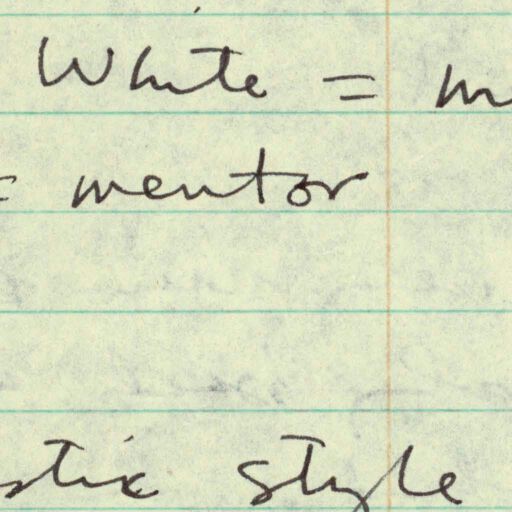 White = m
= mentor
stic style